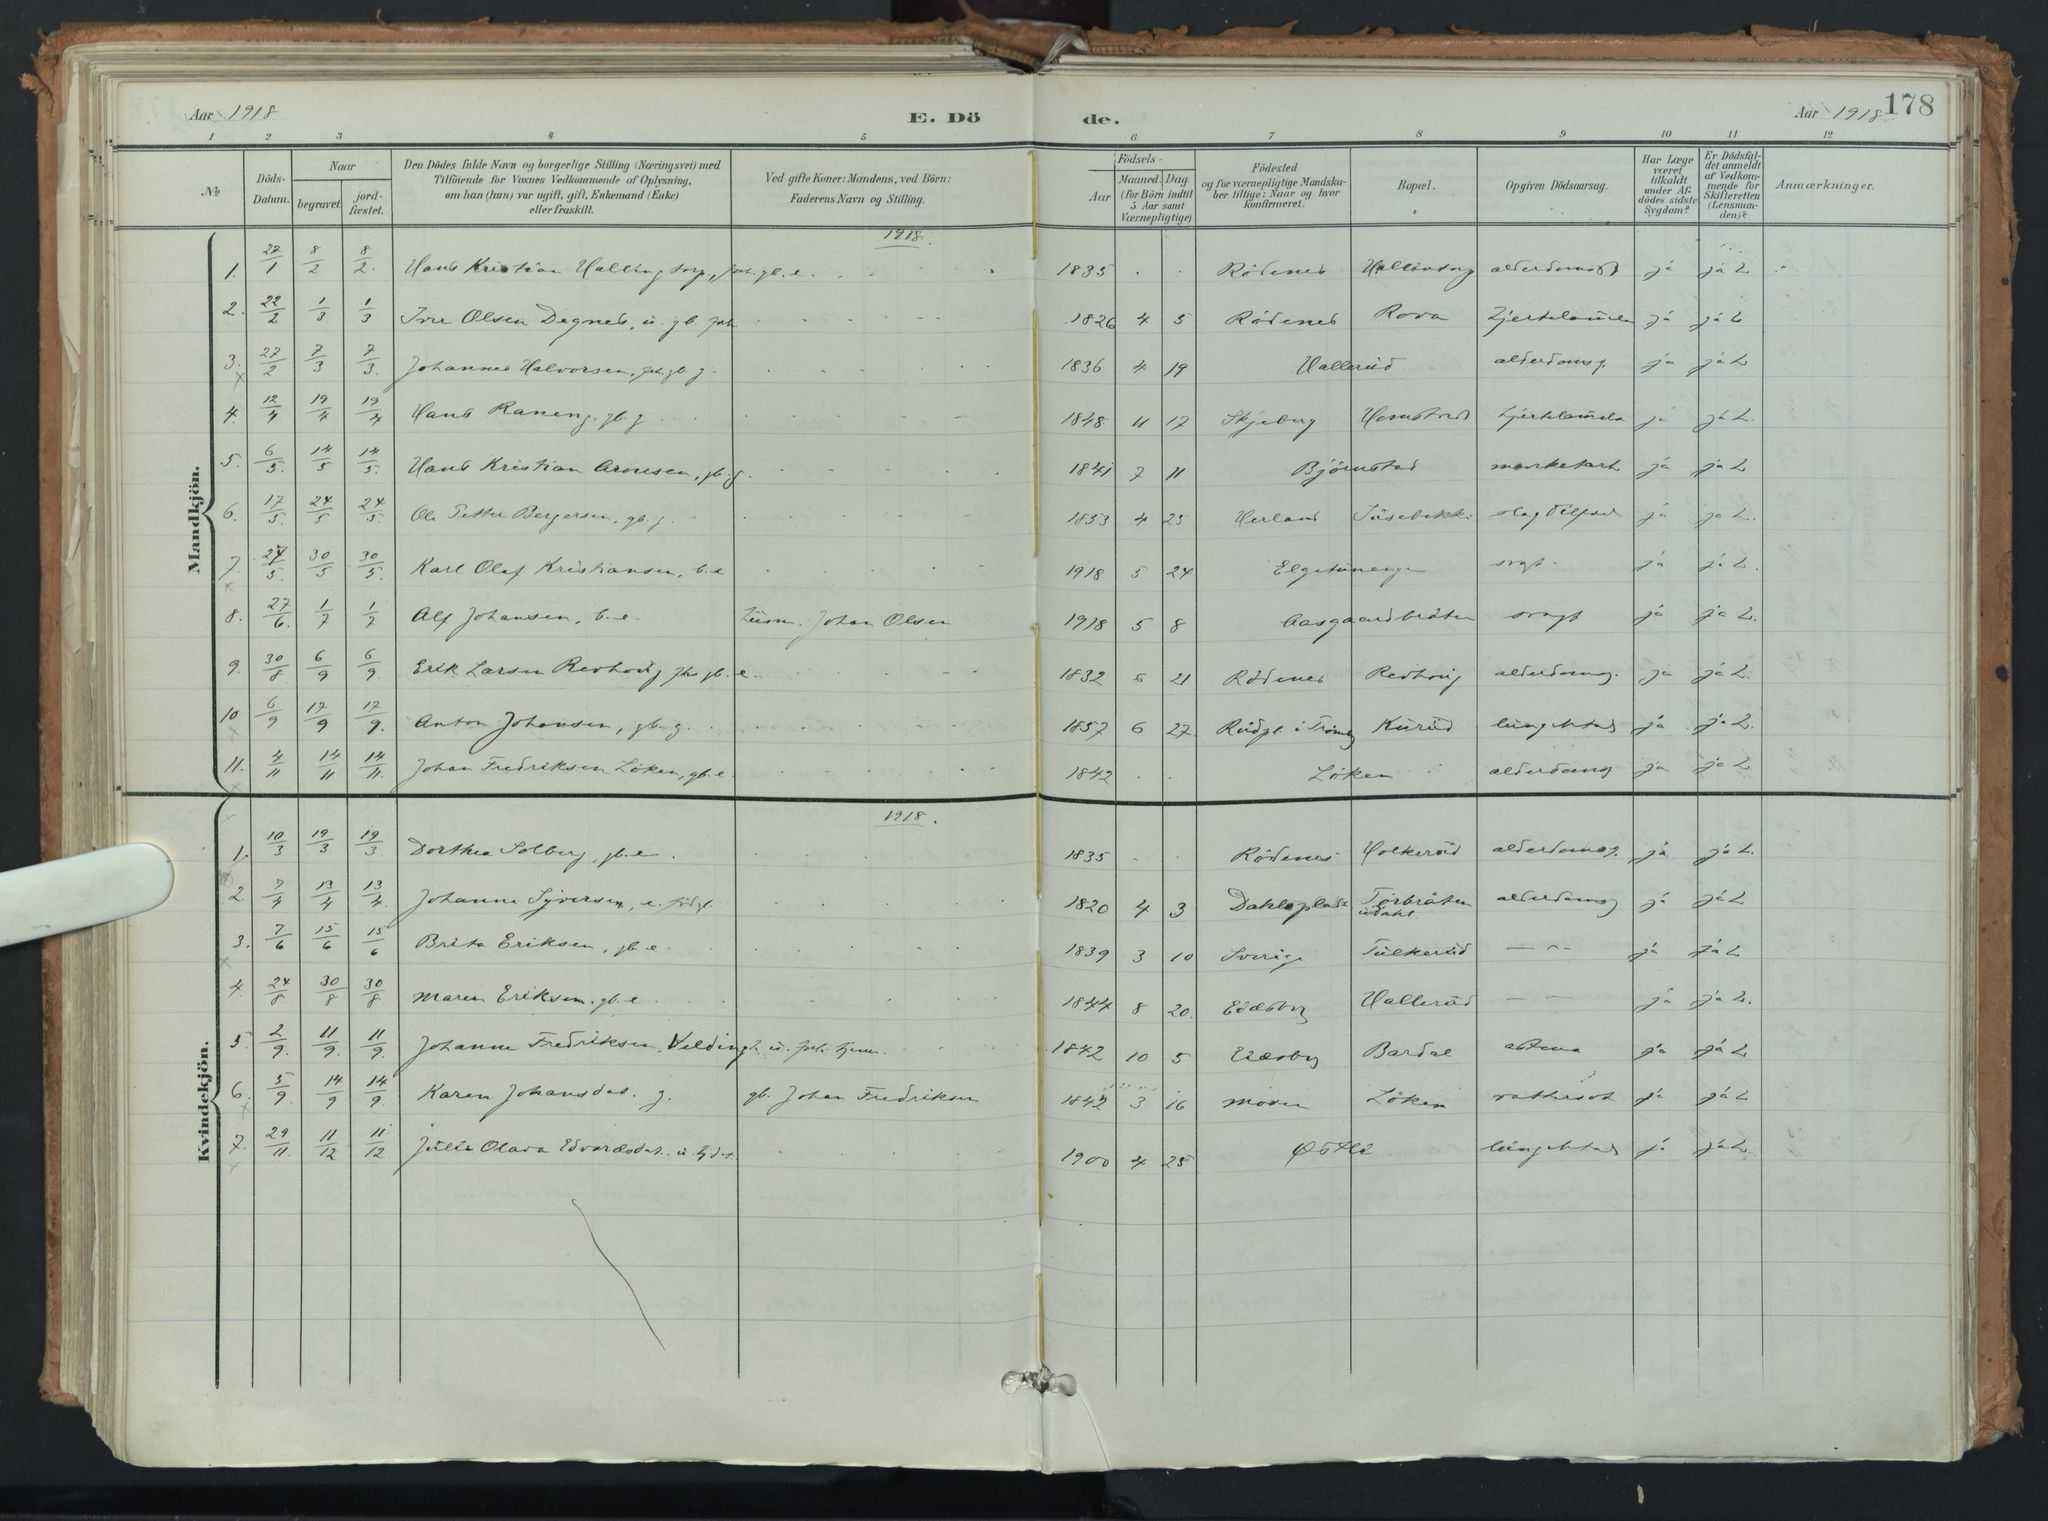 Aar 1918
E. Dö
de.
Aar 1918
178
1 2 3 4 5 6 7 8 9 10 11 12
No
Döds-Datum.
Naar
begravet.
jord-fæstet.
Den Dödes fulde Navn og borgerlige Stilling (Næringsvei) med
Tilföiende for Voxnes Vedkommende af Oplysning,
om han (hun) var ugift, gift, Enkemand (Enke)
eller fraskilt.
Ved gifte Koner: Mandens, ved Börn:
Faderens Navn og Stilling.
Födsels-
Aar
Maaned. Dag.
(for Börn indtil
5 Aar samt
Værnepligtige)
Födested
og for værnepligtige Mandska-
ber tillige: Naar og hvor
konfirmeret.
Bopæl.
Opgiven Dödsaarsag.
Har Læge
været
tilkaldt
under Af-
dödes sidste
Sygdom?
Er Dödsfal-
det anmeldt
af Vedkom-
mende for
Skifteretten
(Lensman-
den)?
Anmærkninger.
Mandkjön.
1918.
1. 27/1 8/2 8/2. Hans Kristian Hallingtorp, gb. e. 1835 Rödenes ja ja L
2. 22/2 1/3 1/3 Iver Olsen Degnes, u. gb. 1826 4 5 Rödenes Rova ja ja L
3. 27/2 7/3 7/3. Johannes Halvorsen, gb. g. 1836 4 19 Hallerüd alderdomsg. ja ja L
4. 12/4 19/4 19/4 Hans Raneng. gb. g 1848 11 17 Skjeberg ja ja L.
5. 6/5. 14/5 14/5. Hans Kristian Arnesen, gb. g. 1841 7 11 Björnstad ja ja L
6. 17/5. 24/5 24/5. Ole Petter Bergersen, gb. g. 1853 4 25 Herland ja ja L.
7. 27/5 30/5 30/5. Karl Olaf Kristiansen, b. e 1918 5 24 svagt. ja ja L.
8. 27/6. 1/7 1/7 Alf Johansen, b. e. Johan Olsen 1918 5 8 Aasgaardbråten svagt ja ja L.
9. 30/8 6/9 6/9. Erik Larsen Revhoüg gb. e. 1832 21 Rödenes Revhoüg alderdomsg. ja ja L.
10 6/9 17/9 17/9. Anton Johansen, gb. g. 1857 6 27 Kürüd ja ja L.
11. 4/11 14/11 14/11. Johan Fredriksen Löken, gb. e. 1842 Löken alderdomsg ja ja L.
Kvindekjön.
1918.
1. 10/3 19/3 19/3 Dorthea Solberg, gb. e. 1835 Rödenes alderdomsg. ja ja L.
2. 7/4 13/4 13/4. Johanne Syversen, e. 1820 4 3 Dahleplads Torbråten alderdomsg ja ja L
3. 7/6 15/6 15/6 Brita Eriksen, gb. e. 1839 3 10 Sverige Tülkerüd — " — ja ja L
4. 24/8 30/8 30/8 Maren Eriksen. gb. e. 1844 8 20. Eidsberg Hallerüd — " — ja ja L.
5. 2/9. 11/9. 11/9. Johanne Fredriksen, u. 1842 10 5 Eidsberg Bardal astma ja ja L
6. 5/9. 14/9 14/9 Karen Johansdat. g. gb. Johan Fredriksen 1842 3 16 Mosen Löken vattersot ja ja L
7. 29/11. 11/12 11/12 Jülie Olava Edvardsdat. u. 1900 4 25 Østli ja ja L.